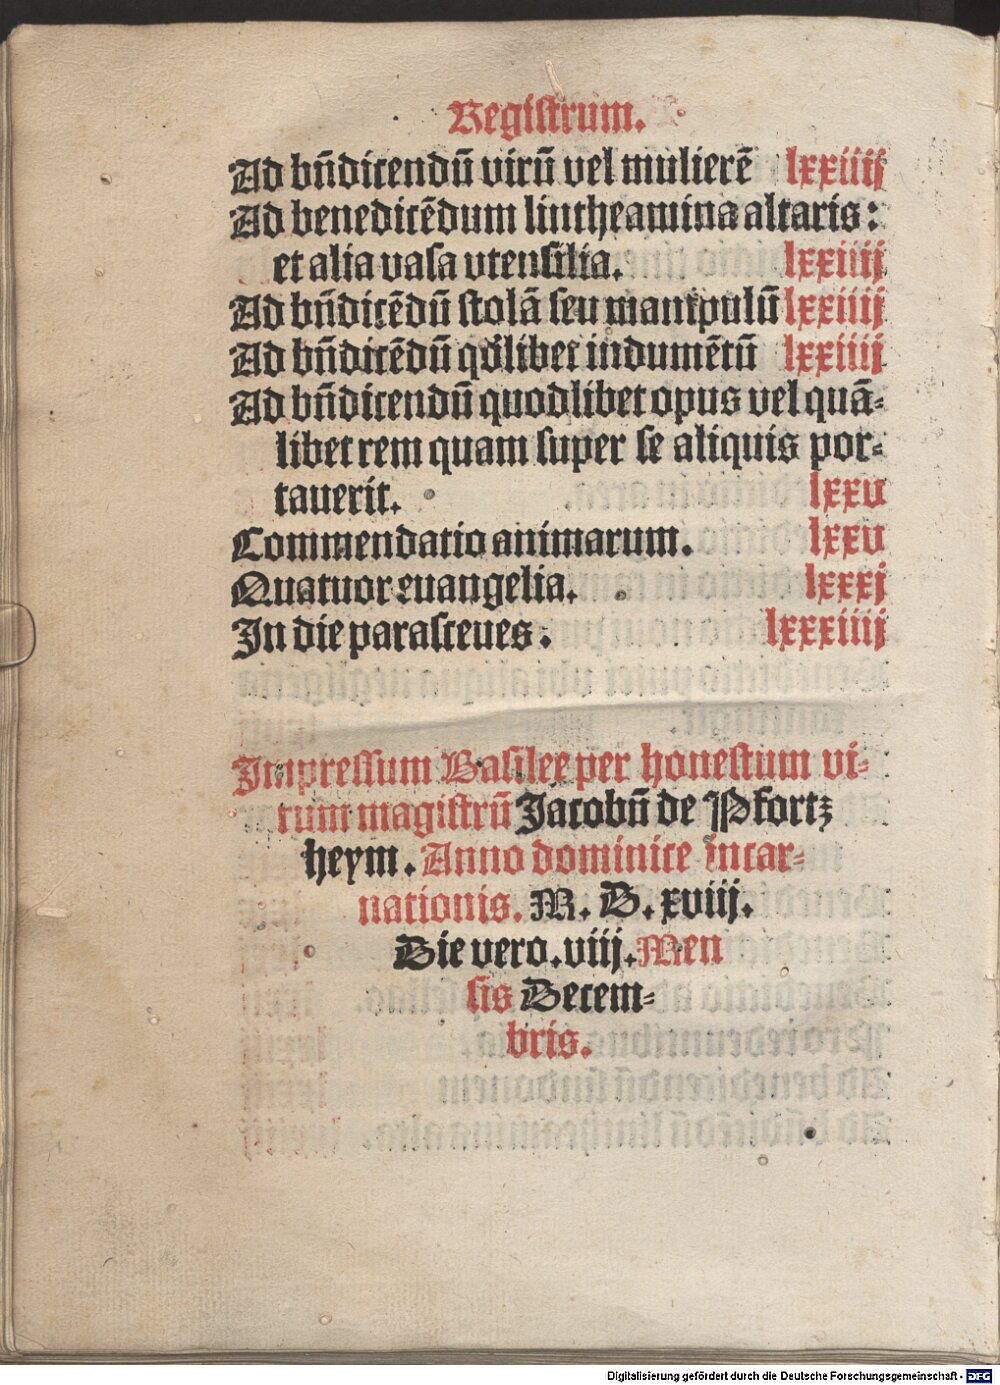 Registrum.
Ad bn̄dicendū virū vel mulierē lxxiiij
Ad benedicēdum lintheamina altaris:
et alia vasa vtensilia. lxxiiij
Ad bn̄dicēdū stolā seu manipulū lxxiiij
Ad bn̄dicēdū qḋlibet indumētū lxxiiij
Ad bn̄dicendū quodlibet opus vel quā-
libet rem quam super se aliquis por-
tauerit. lxxv
Commendatio animarum. lxxv
Quatuor euangelia. lxxxj
In die parasceues. lxxxiiij
Impressum Basilee per honestum vi-
rum magistrū Jacobū de Pfortz
heym. Anno dominice incar-
nationis. M. D. xviij.
Die vero. viij. Men
sis Decem-
bris.
Digitalisierung gefördert durch die Deutsche Forschungsgemeinschaft - DFG